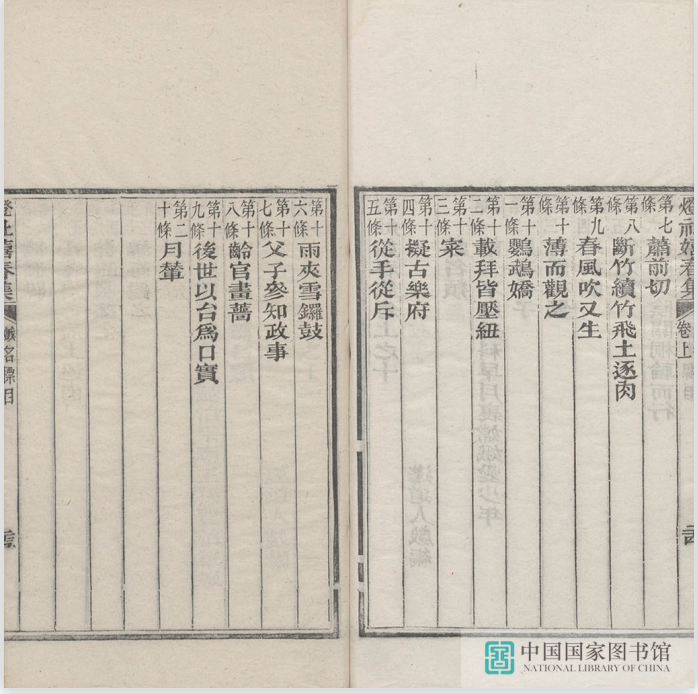 嬉春集 卷上
第七條 蕭前切
第八條 斷竹續竹飛土逐肉
第九條 春風吹又生
第十條 薄而觀之
第十一條 鸚鵡嬌
第十二條 載拜皆壓紐
第十三條
第十四條 擬古樂府
第十五條 從手從斥
第十六條 雨夾雪鑼鼓
第十七條 父子參知政事
第十八條 齡官畫薔
第十九條 後世以台爲口實
第二十條 月輦
中国国家图书馆
NATIONAL LIBRARY OF CHINA